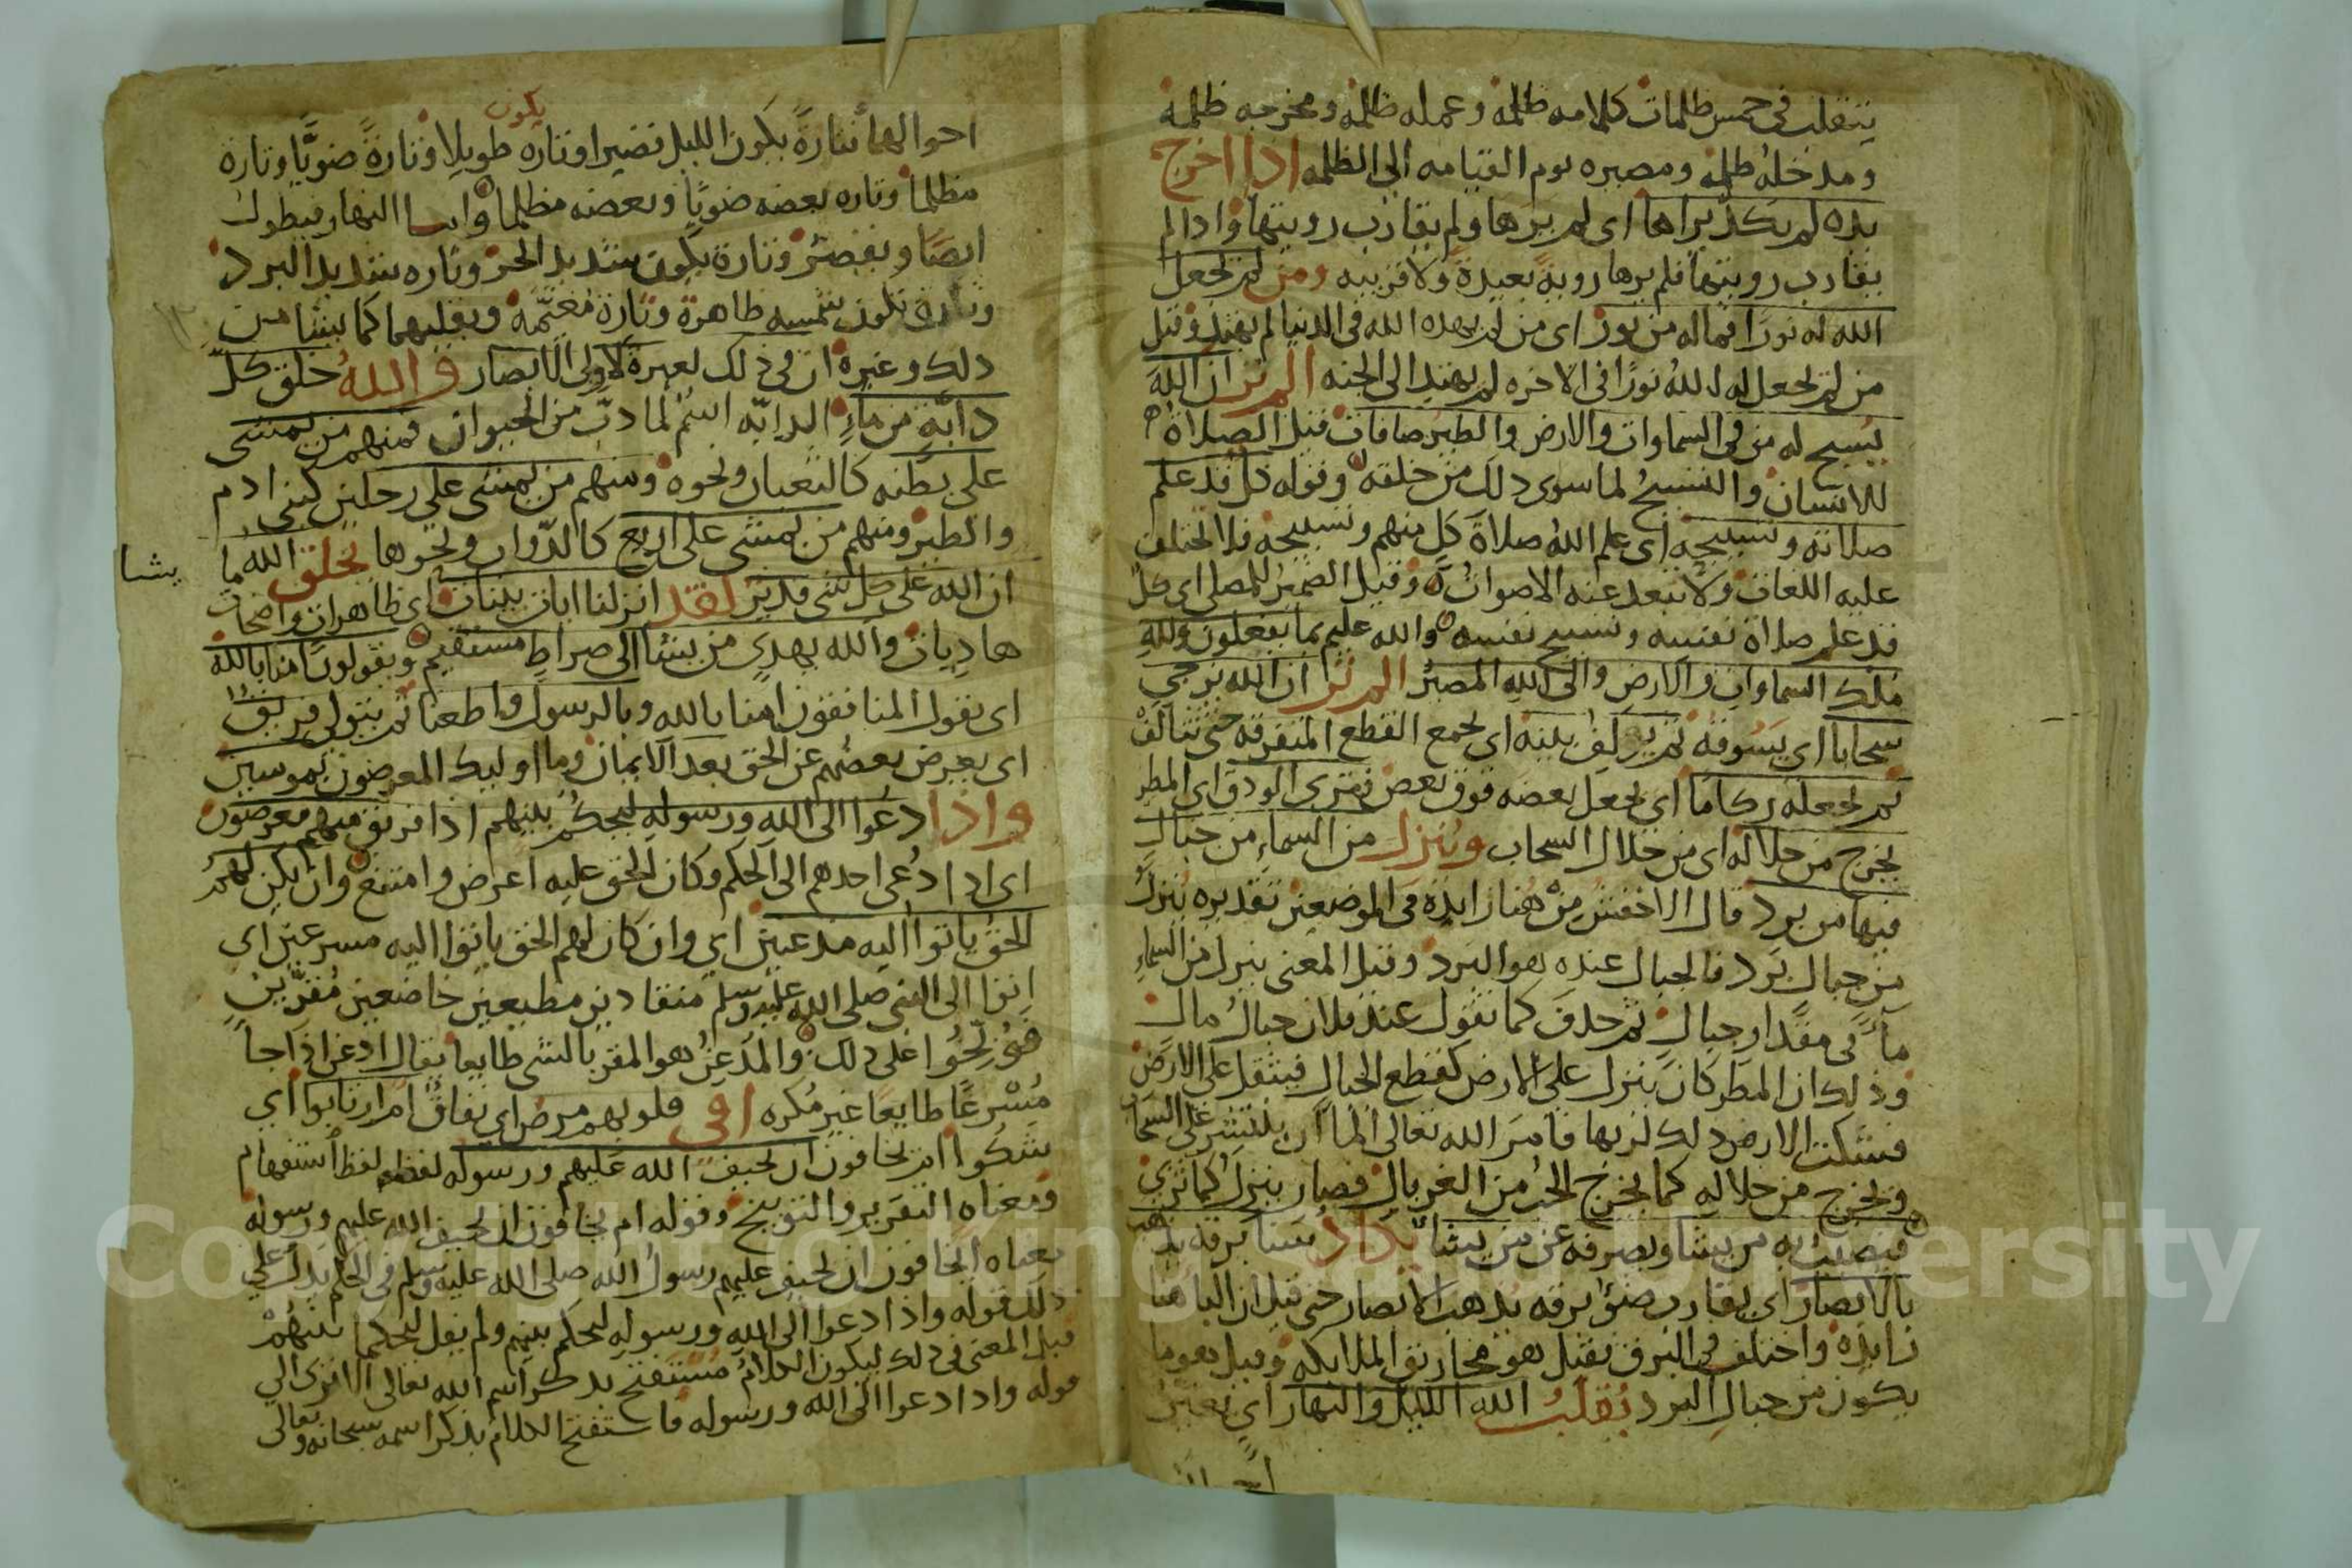 يتقلب في خمس ظلمات كلامه ظلمة وعمله ظلمة ومخرجه ظلمة
ومدخله ظلمة ومصيره يوم القيامه الى الظلمه اذا اخرج
يده لم يكد يراها اى لم يرها ولم يقارب رويتها واذا لم
يقارب رويتها فلم يرها روية بعيدة ولا قريبه ومن لم يجعل
الله له نورا فما له من نور اى من لم يهده الله في الدنيا لم يهتد وقيل
من لم يجعل له الله نورا في الاخره لم يهتد الى الجنه الم تر ان الله
يسبح له من في السماوات والارض والطير صافات قيل الصلاة
للانسان والتسبيح لما سوى ذلك من خلقه وقوله كل قد علم
صلاته وتسبيحه اى علم الله صلاة كل منهم وتسبيحه فلا تختلف
عليه اللغات ولا تبعد عنه الاصوات وقيل الضمير للمصلي اى كل
قد علم صلاة نفسه وتسبيح نفسه والله عليم بما يفعلون ولله
ملك السماوات والارض والى الله المصير الم تر ان الله يزجي
سحابا اى يسوقه ثم يولف بينه اى يجمع القطع المتفرقه حتى تتالف
ثم يجعله ركاما اى يجعل بعضه فوق بعض فترى الودق اى المطر
يخرج من خلاله اى من خلال السحاب وينزل من السماء من جبال
فيها من برد قال الاخفش من هنا زايدة في الموضعين تقديره ينزل
من جبال برد فالجبال عنده هو البرد وقيل المعنى ينزل من السماء
ماً في مقدار جبال ثم حذف كما تقول عند فلان جبال مال
وذلك ان المطر كان ينزل على الارض كقطع الجبال فيثقل على الارض
فشكت الارض ذلك لربها فامر الله تعالى الما ان ينتشر على السحاب
ويخرج من خلاله كما يخرج الحب من الغربال فصار ينزل كما ترى
فيصيب به من يشا ويصرفه عن من يشا يكاد سنا برقه يذهب
بالابصار اى يقارب ضو برقه يذهب الابصار حتى قيل ان البا هنا
زايدة واختلف في البرق فقيل هو مخاريق الملايكه وقيل هو ما
يكون من جبال البرد يقلب الله الليل والنهار اى يغير
احوالهما فتارة يكون الليل قصيرا وتاره يكون طويلا وتارة ضويا وتارة
مظلما وتاره بعضه ضويا وبعضه مظلما واما النهار فيطول
ايضا ويقصر وتارة يكون شديد الحر وتاره شديد البرد
وتارة تكون شمسه ظاهرة وتارة مغتمة ويقلبهما كما يشا من
ذلك وغيره ان في ذلك لعبرة لاولى الابصار والله خلق كل
دابة من ماء الدابه اسم لما دب من الحيوان فمنهم من يمشى
على بطنه كالثعبان ونحوه ومنهم من يمشى على رجلين كبني ادم
والطير ومنهم من يمشى على اربع كالدواب ونحوها يخلق الله ما يشا
ان الله على كل شى قدير لقد انزلنا ايات بينات اى ظاهرات واضحات
هاديات والله يهدي من يشا الى صراط مستقيم ويقولون امنا بالله
اى يقول المنافقون امنا بالله وبالرسول واطعنا ثم يتولى فريق
اى يعرض بعضهم عن الحق بعد الايمان وما اوليك المعرضون بمومنين
واذا دعوا الى الله ورسوله ليحكم بينهم اذا فريق منهم معرضون
اى اذا دعى احدهم الى الحكم وكان الحق عليه اعرض وامتنع وان يكن لهم
الحق ياتوا اليه مذعنين اى وان كان لهم الحق ياتوا اليه مسرعين اى
اتوا الى النبى صلى الله عليه وسلم منقادين مطيعين خاضعين مقرين
على ذلك والمذعن هو المقر بالشى طايعا يقال اذعن اذا جا
مسرعا طايعا غير مكره افي قلوبهم مرض اي نفاق ام ارتابوا اى
شكوا ام يخافون ان يحيف الله عليهم ورسوله لفظه لفظ استفهام
ومعناه التقرير والتوبيخ وقوله ام يخافون ان يحيف الله عليهم ورسوله
معناه ايخافون ان يحيف عليهم رسول الله صلى الله عليه وسلم في الحكم يدل على
ذلك قوله واذا دعوا الى الله ورسوله ليحكم بينهم ولم يقل ليحكما بينهم
قيل المعنى في ذلك ليكون الكلام مستفتح بذكر اسم الله تعالى الا ترى الى
قوله واذا دعوا الى الله ورسوله فاستفتح الكلام بذكر اسمه سبحانه وتعالى